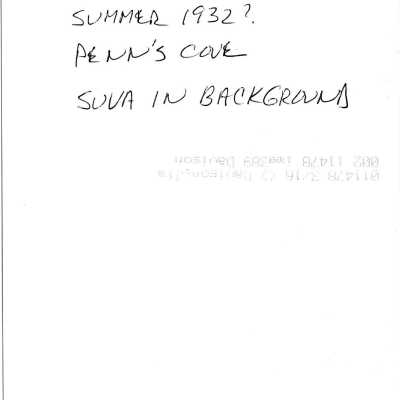 SUMMER 1932?.
PENN'S COVE
SUVA IN BACKGROUND